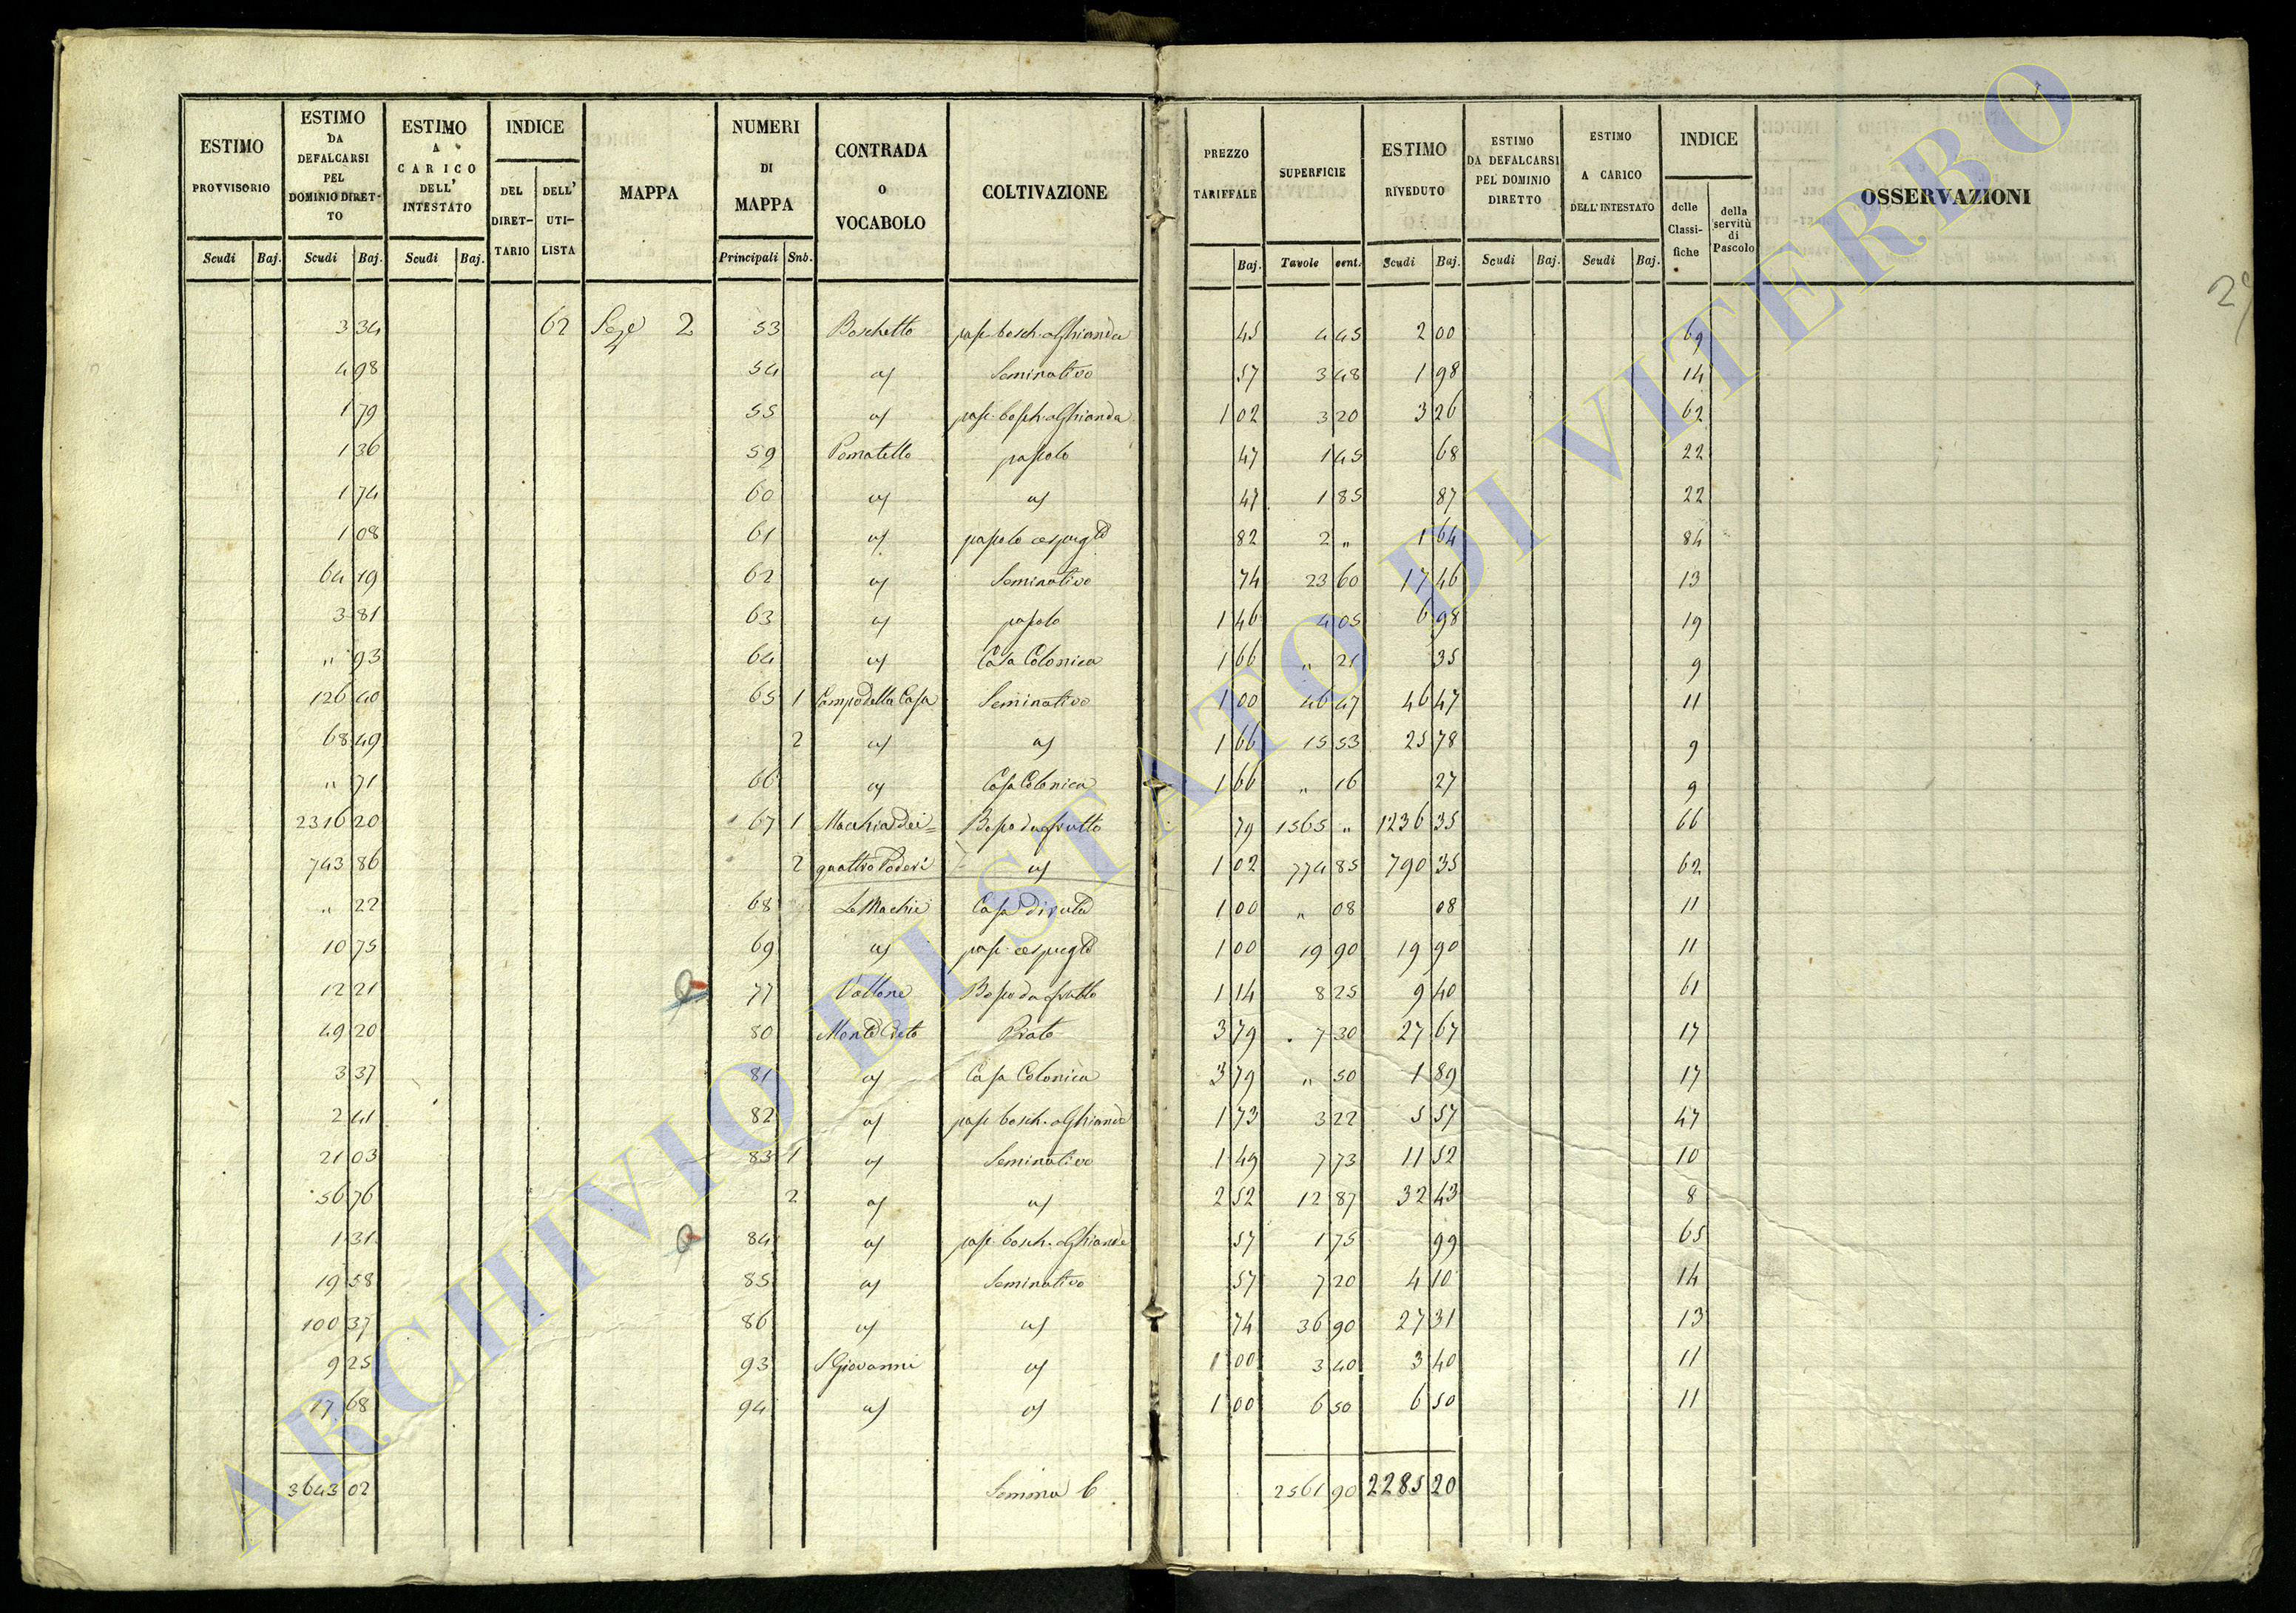 ESTIMO PROVVISORIO
ESTIMO DA DEFALCARSI PEL DOMINIO DIRETTO
ESTIMO A CARICO DELL' INTESTATO
INDICE
DEL DIRETTARIO
DELL' UTILISTA
MAPPA
NUMERI DI MAPPA
CONTRADA O VOCABOLO
COLTIVAZIONE
PREZZO TARIFFALE
SUPERFICIE
ESTIMO RIVEDUTO
ESTIMO DA DEFALCARSI PEL DOMINIO DIRETTO
ESTIMO A CARICO DELL'INTESTATO
INDICE
delle Classifiche
della servitù di Pascolo
OSSERVAZIONI
Scudi Baj. Scudi Baj. Scudi Baj. Principali Sub. Baj. Tavole cent. Scudi Baj. Scudi Baj. Scudi Baj.
3 34 62 2 53 Boschetto pasc. bosch. a Ghianda 45 4 45 2 00 69
4 98 54 id Seminativo 57 3 48 1 98 14
1 79 55 id pasc. bosch. a Ghianda 1 02 3 20 3 26 62
1 36 59 Pomatello pascolo 47 1 45 68 22
1 74 60 id id 47 1 85 87 22
1 08 61 id pascolo cespugl 82 2 " 1 64 84
64 19 62 id Seminativo 74 23 60 17 46 13
3 81 63 id pascolo 1 46 4 05 6 98 19
" 93 64 id Casa Colonica 1 66 " 21 35 9
126 40 65 1 Campo della Casa Seminativo 1 00 46 47 46 47 11
68 49 2 id id 1 66 15 53 25 78 9
" 71 66 id Casa Colonica 1 66 " 16 27 9
2316 20 67 1 Macchia dei= Bosco da frutto 79 1565 " 1236 35 66
743 86 2 quattro Poderi id 1 02 774 85 790 35 62
" 22 68 Le Machie Casa diruta 1 00 " 08 08 11
10 75 69 id pasc. cespugl 1 00 19 90 19 90 11
12 21 77 Vallone Bosco da frutto 1 14 8 25 9 40 61
49 20 80 Prato 3 79 7 30 27 67 17
3 37 81 id Casa Colonica 3 79 " 50 1 89 17
2 41 82 id pasc. bosch. a Ghianda 1 73 3 22 5 57 47
21 03 83 1 id Seminativo 1 49 7 73 11 52 10
56 76 2 id id 2 52 12 87 32 43 8
1 31 84 id pasc. bosch. a Ghianda 57 1 75 99 65
19 58 85 id Seminativo 57 7 20 4 10 14
100 37 86 id id 74 36 90 27 31 13
9 25 93 S Giovanni id 1 00 3 40 3 40 11
17 68 94 id id 1 00 6 50 6 50 11
3643 02 Somma 6 2561 90 2285 20
ARCHIVIO DI STATO DI VITERBO